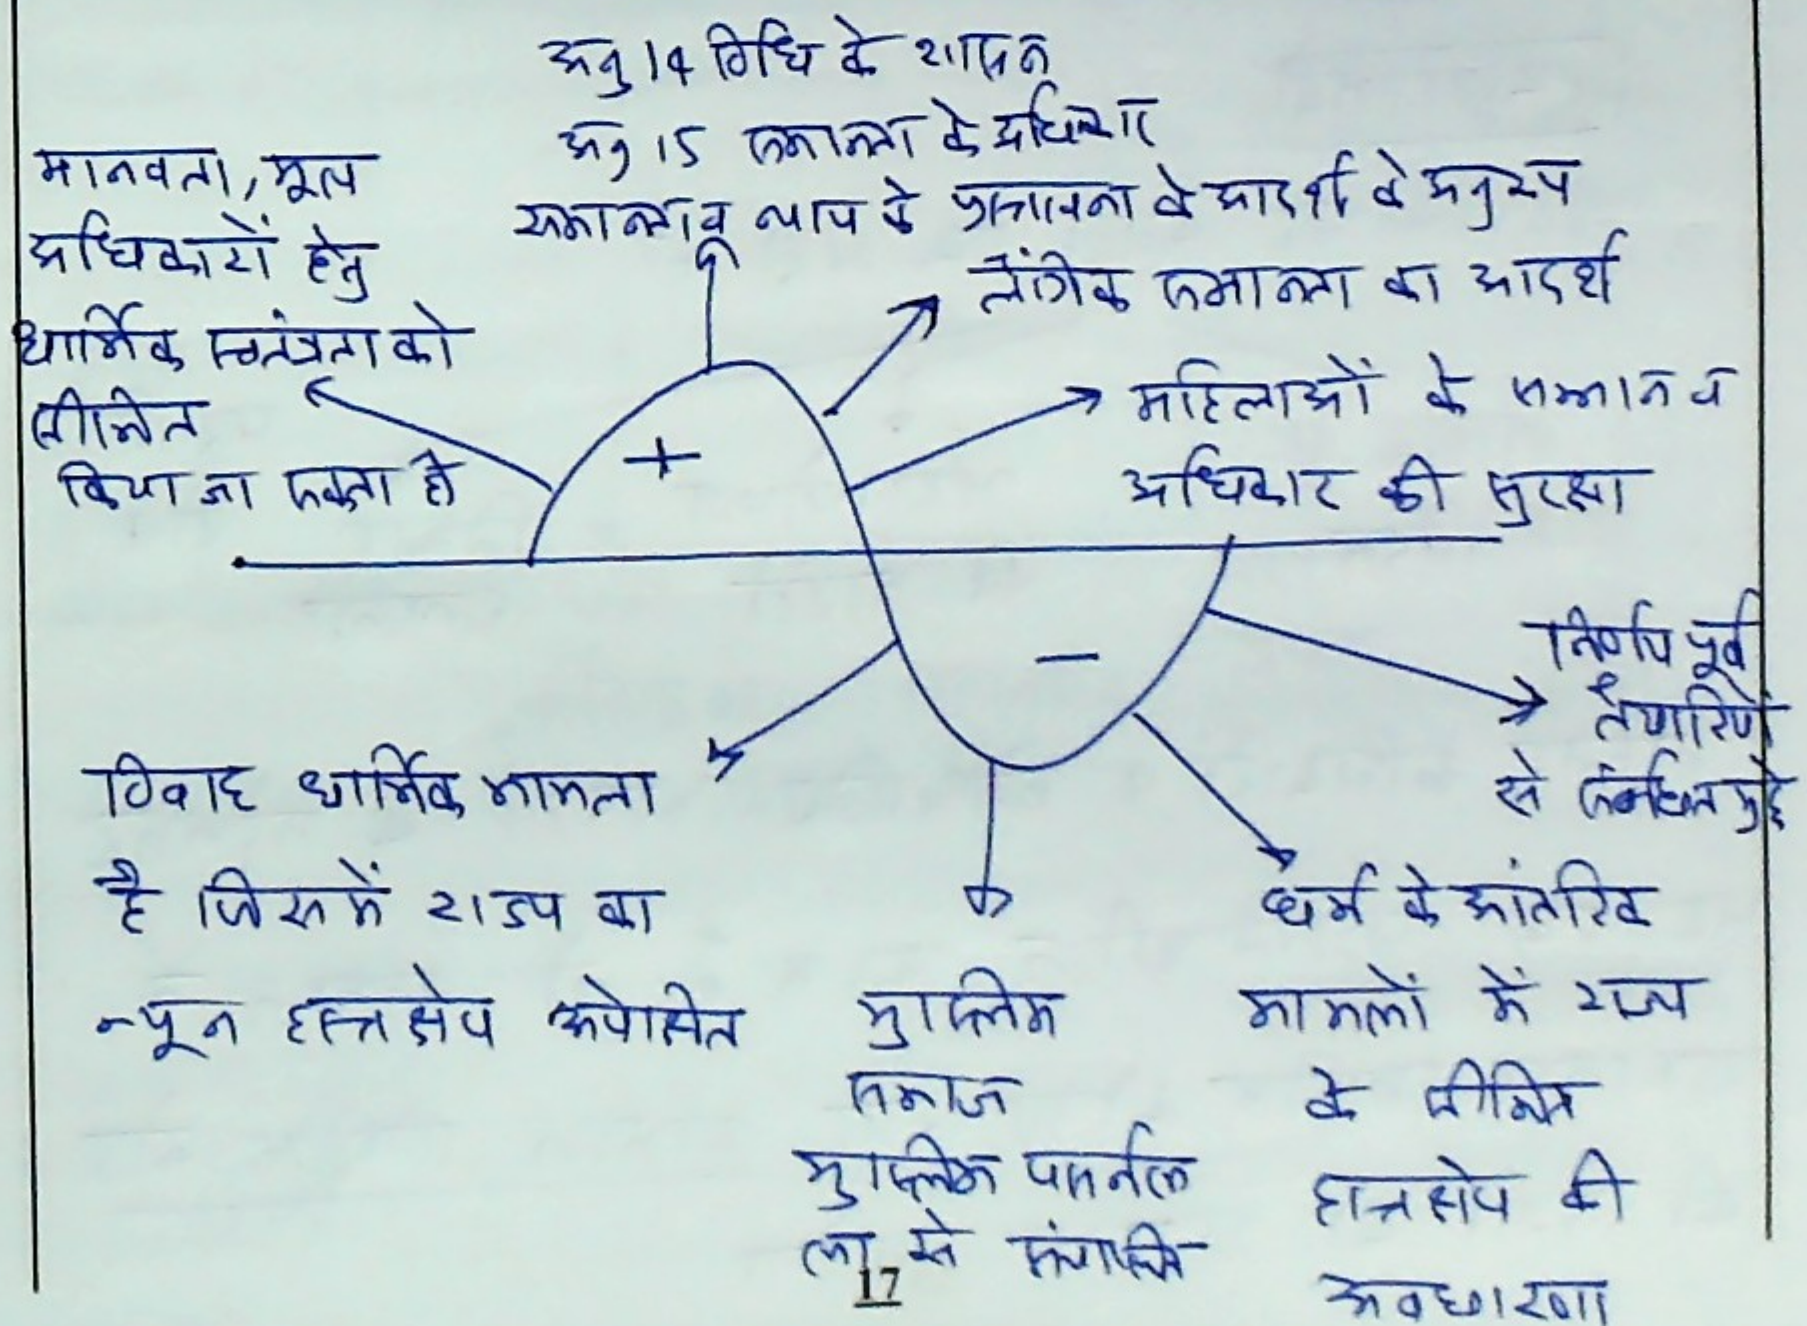 अनु 14 विधि के शासन
अनु 15 समानता के अधिकार
समानता व न्याय के प्रस्तावना के आदर्श के अनुरूप
मानवता, मूल
अधिकारों हेतु
धार्मिक स्वतंत्रता को
सीमित
किया जा सकता है
लैंगिक समानता का आदर्श
महिलाओं के सम्मान व
अधिकार की सुरक्षा
+
−
निर्णय पूर्व
तैयारियों
से संबंधित मुद्दे
विवाह धार्मिक मामला
है जिसमें राज्य का
न्यून हस्तक्षेप अपेक्षित
मुस्लिम
समाज
मुस्लिम पर्सनल
ला से संचालित
धर्म के आंतरिक
मामलों में राज्य
के सीमित
हस्तक्षेप की
अवधारणा
17